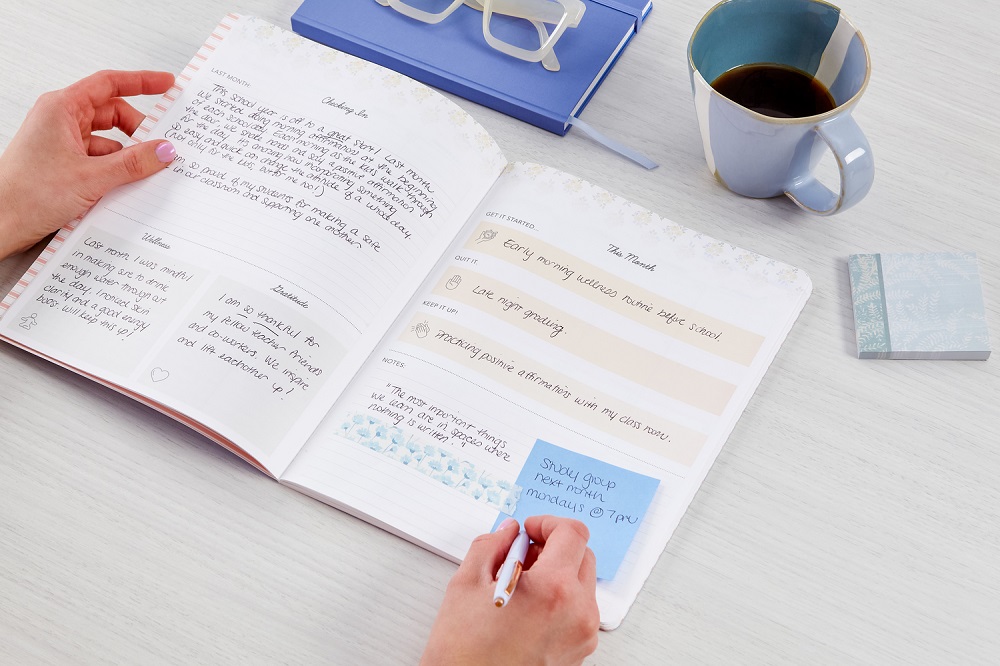 LAST MONTH:
Checking In
This school year is off to a great start! Last month
we started doing morning affirmations at the beginning
of each school day. Each morning as the kids walk through
the door we shake hands and say a positive affirmation
for the day. It's amazing how incorporating something
so easy and quick can change the attitude of a whole day.
(Not only for the kids, but for me too!)
I am so proud of my students for making a safe
in our classroom and supporting one another.
Wellness
Last month I was mindful
in making sure to drink
enough water throughout
the day. I noticed skin
clarity and a good energy
boost. Will keep this up!
Gratitude
I am so thankful for
my fellow teacher friends
and co-workers. We inspire
and lift eachother up!
This Month
GET IT STARTED...
Early morning wellness routine before school.
QUIT IT.
Late night grading.
KEEP IT UP!
Practicing positive affirmations with my class room.
NOTES:
"The most important things
we learn are in spaces where
nothing is written."
Study group
next month
mondays @ 7pm